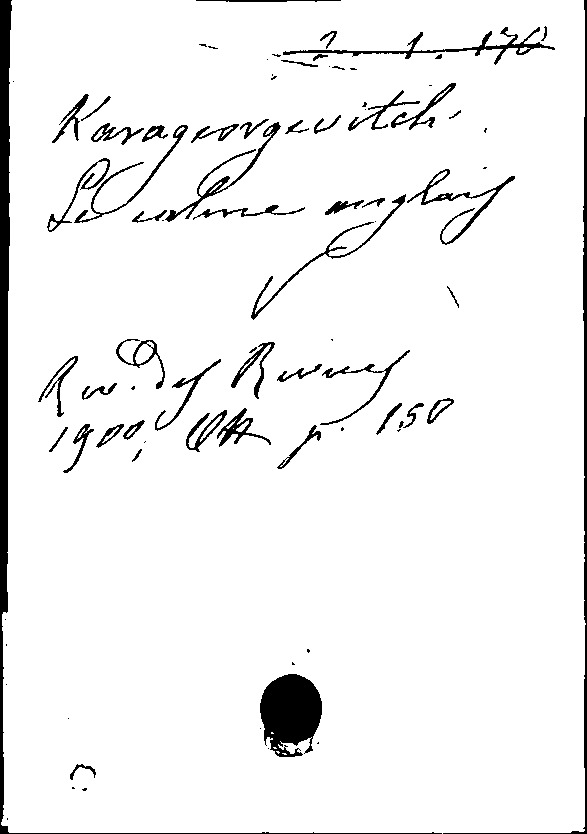 2. 1. 170
Karageorgevitch
Le calme anglais
Rev. des Revues
1900, Okt p. 150